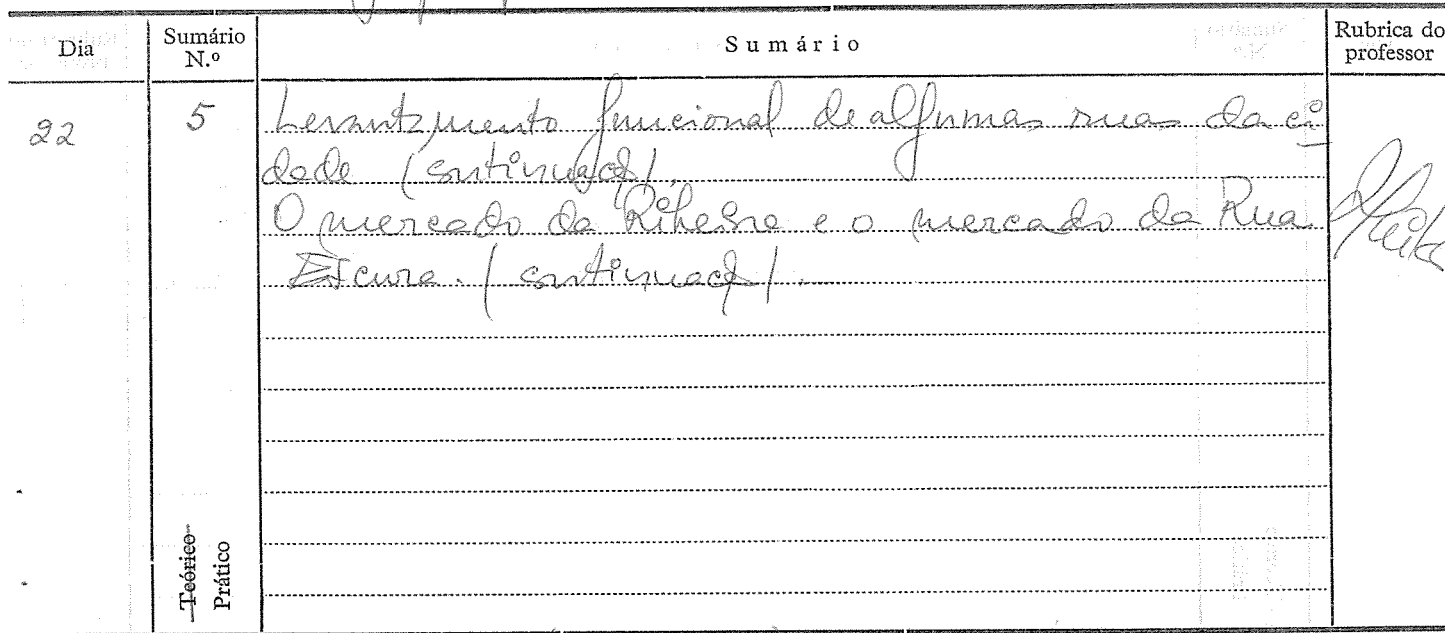 Dia
Sumário N.º
Sumário
Rubrica do professor
22
5
Levantamento funcional de algumas ruas da ci
dade (continuação).
O mercado da Ribeira e o mercado da Rua
Escura. (continuação).
Teórico
Prático